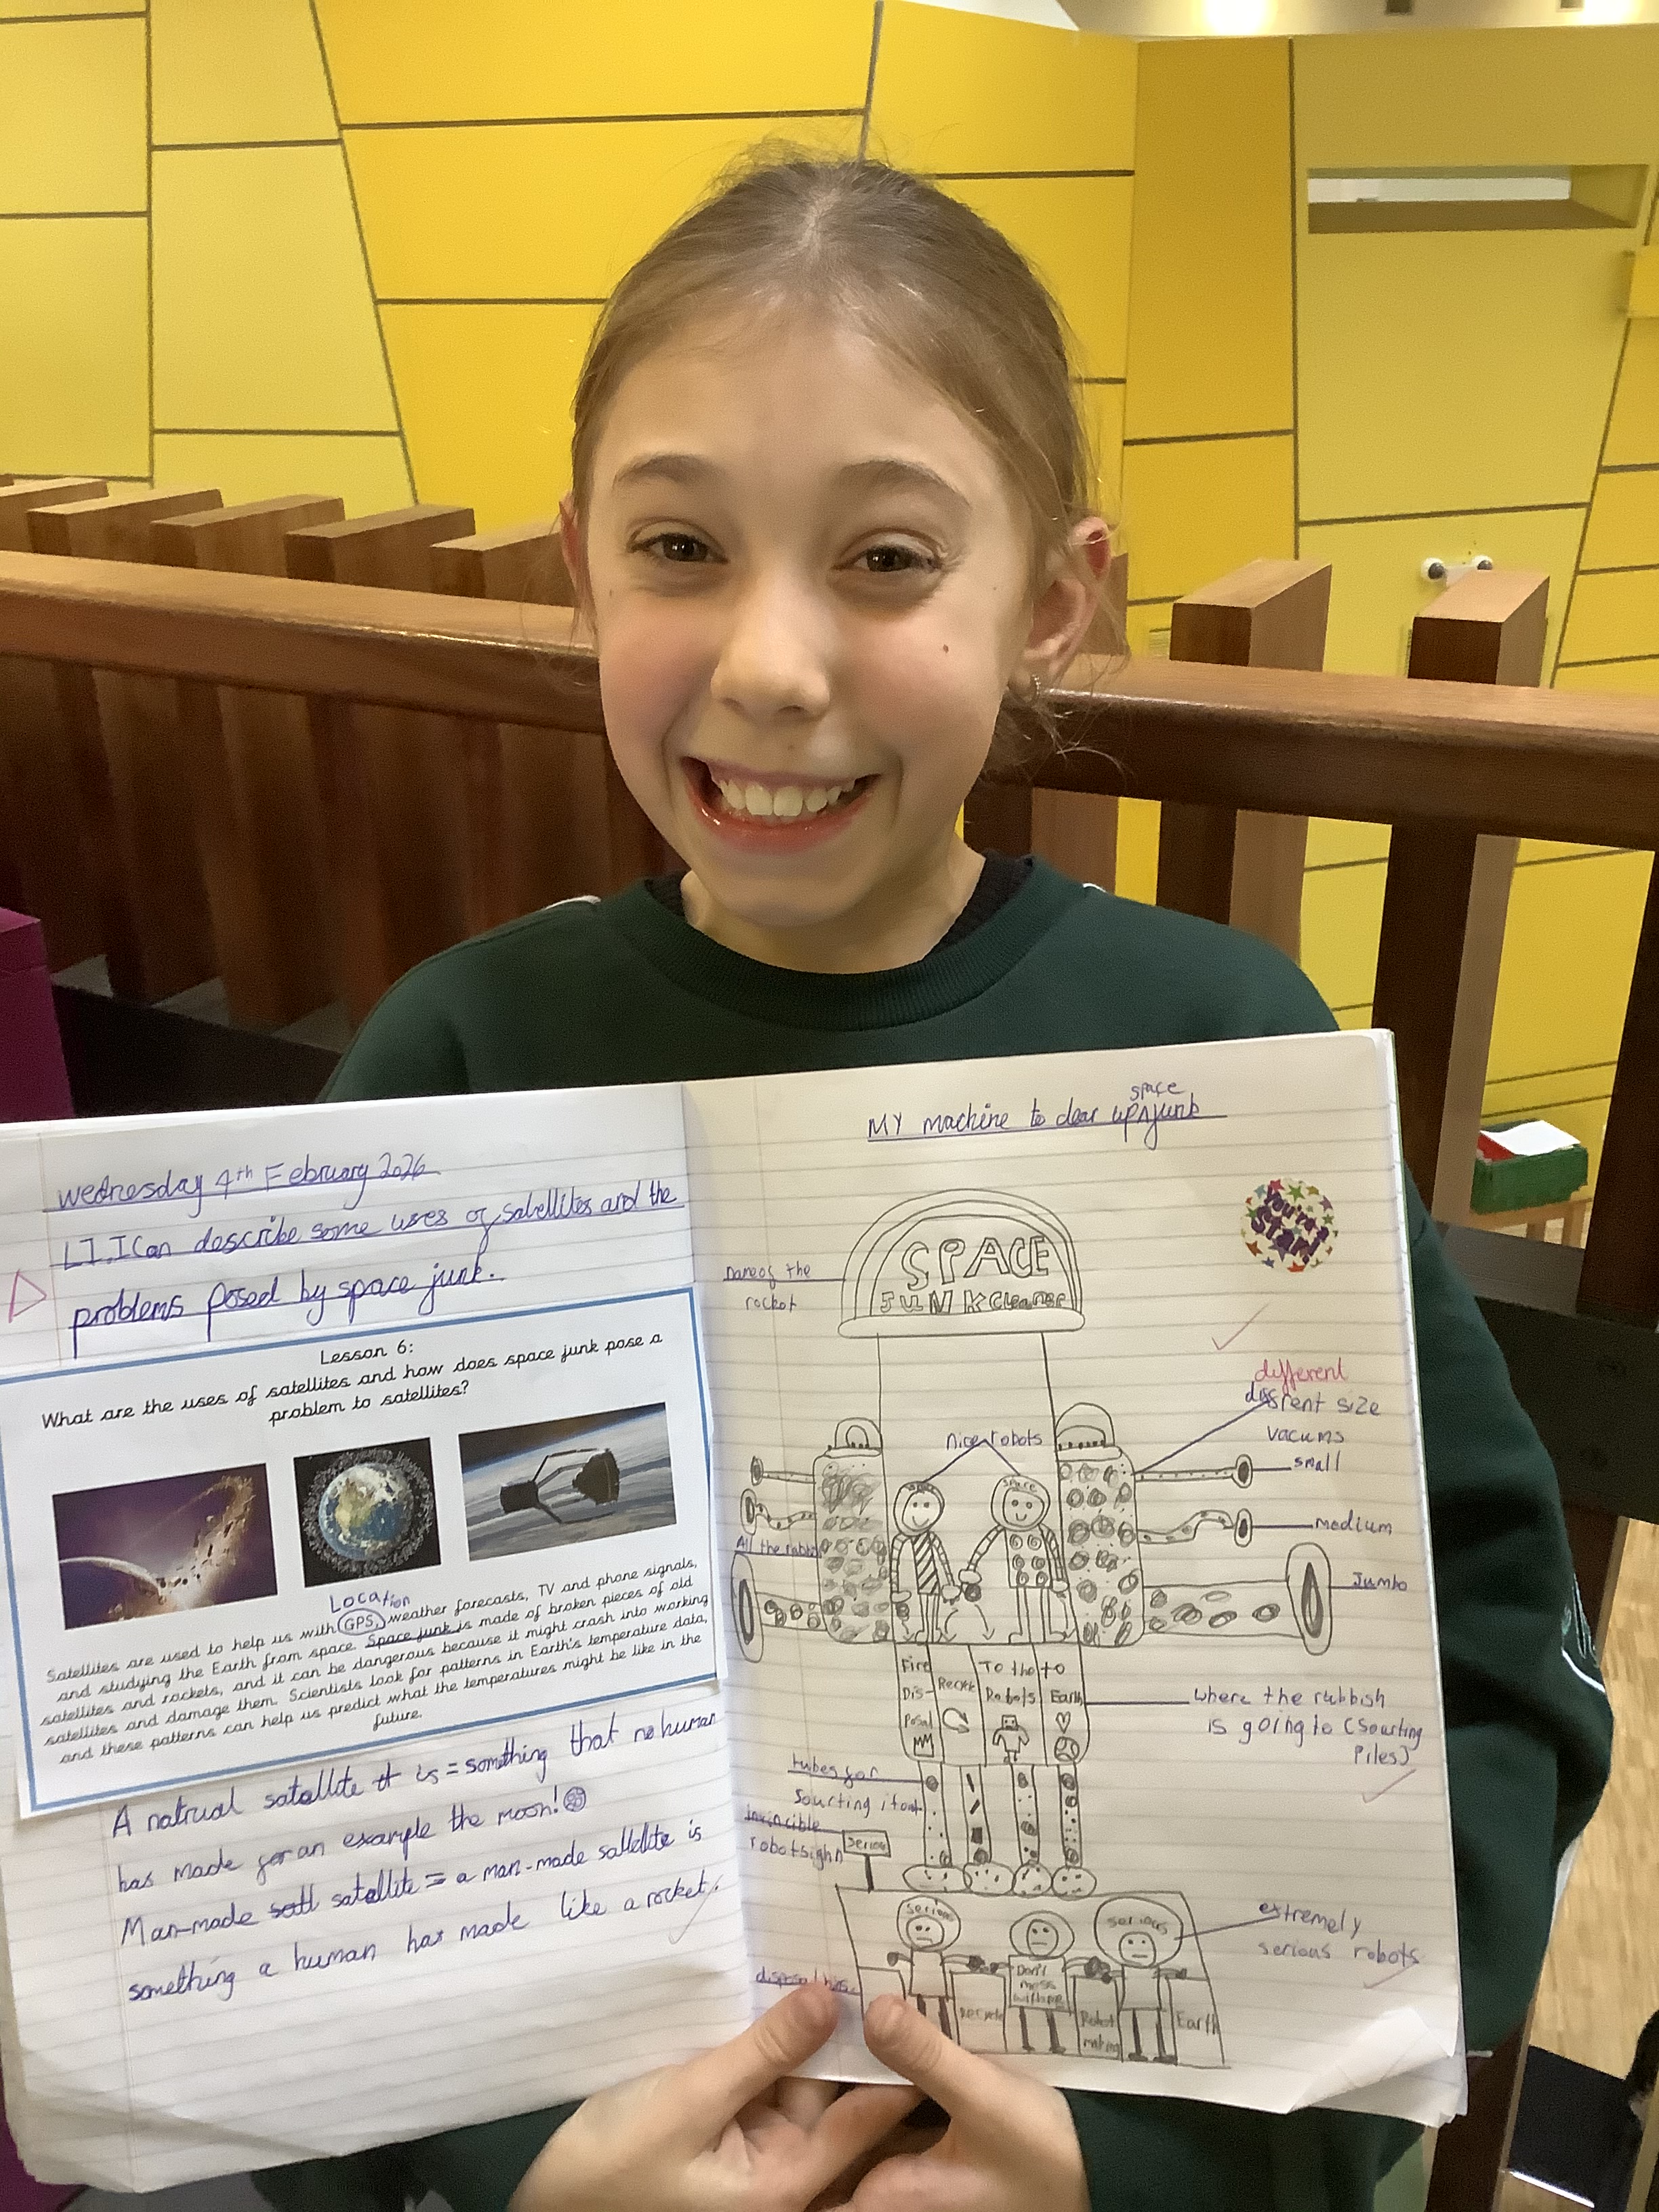 wednesday 4th February 2026
LI.I Can describe some uses of satellites and the
problems posed by space junk.
Lesson 6:
What are the uses of satellites and how does space junk pose a
problem to satellites?
Location
Satellites are used to help us with GPS, weather forecasts, TV and phone signals,
and studying the Earth from space. Space junk is made of broken pieces of old
satellites and rockets, and it can be dangerous because it might crash into working
satellites and damage them. Scientists look for patterns in Earth's temperature data,
and these patterns can help us predict what the temperatures might be like in the
future.
A natrual satellite is = something that no human
has made for an example the moon!
Man-made satellite = a man-made satellite is
something a human has made like a rocket.
space
MY machine to clear up junk
You're a star!
SPACE
JUNK cleaner
name of the
rocket
different
size
vacums
small
medium
Jumbo
nice robots
All the rubbi
Fire
Dis-
posal
Recycle
To the
Robots
to
Earth
where the rubbish
is going to (sourting
Piles)
tubes for
sourting it out
invincible
robot sighn
serious
extremely
serious robots
serious
serious
Don't
mess
disposal bins
recycle
Robot
making
Earth